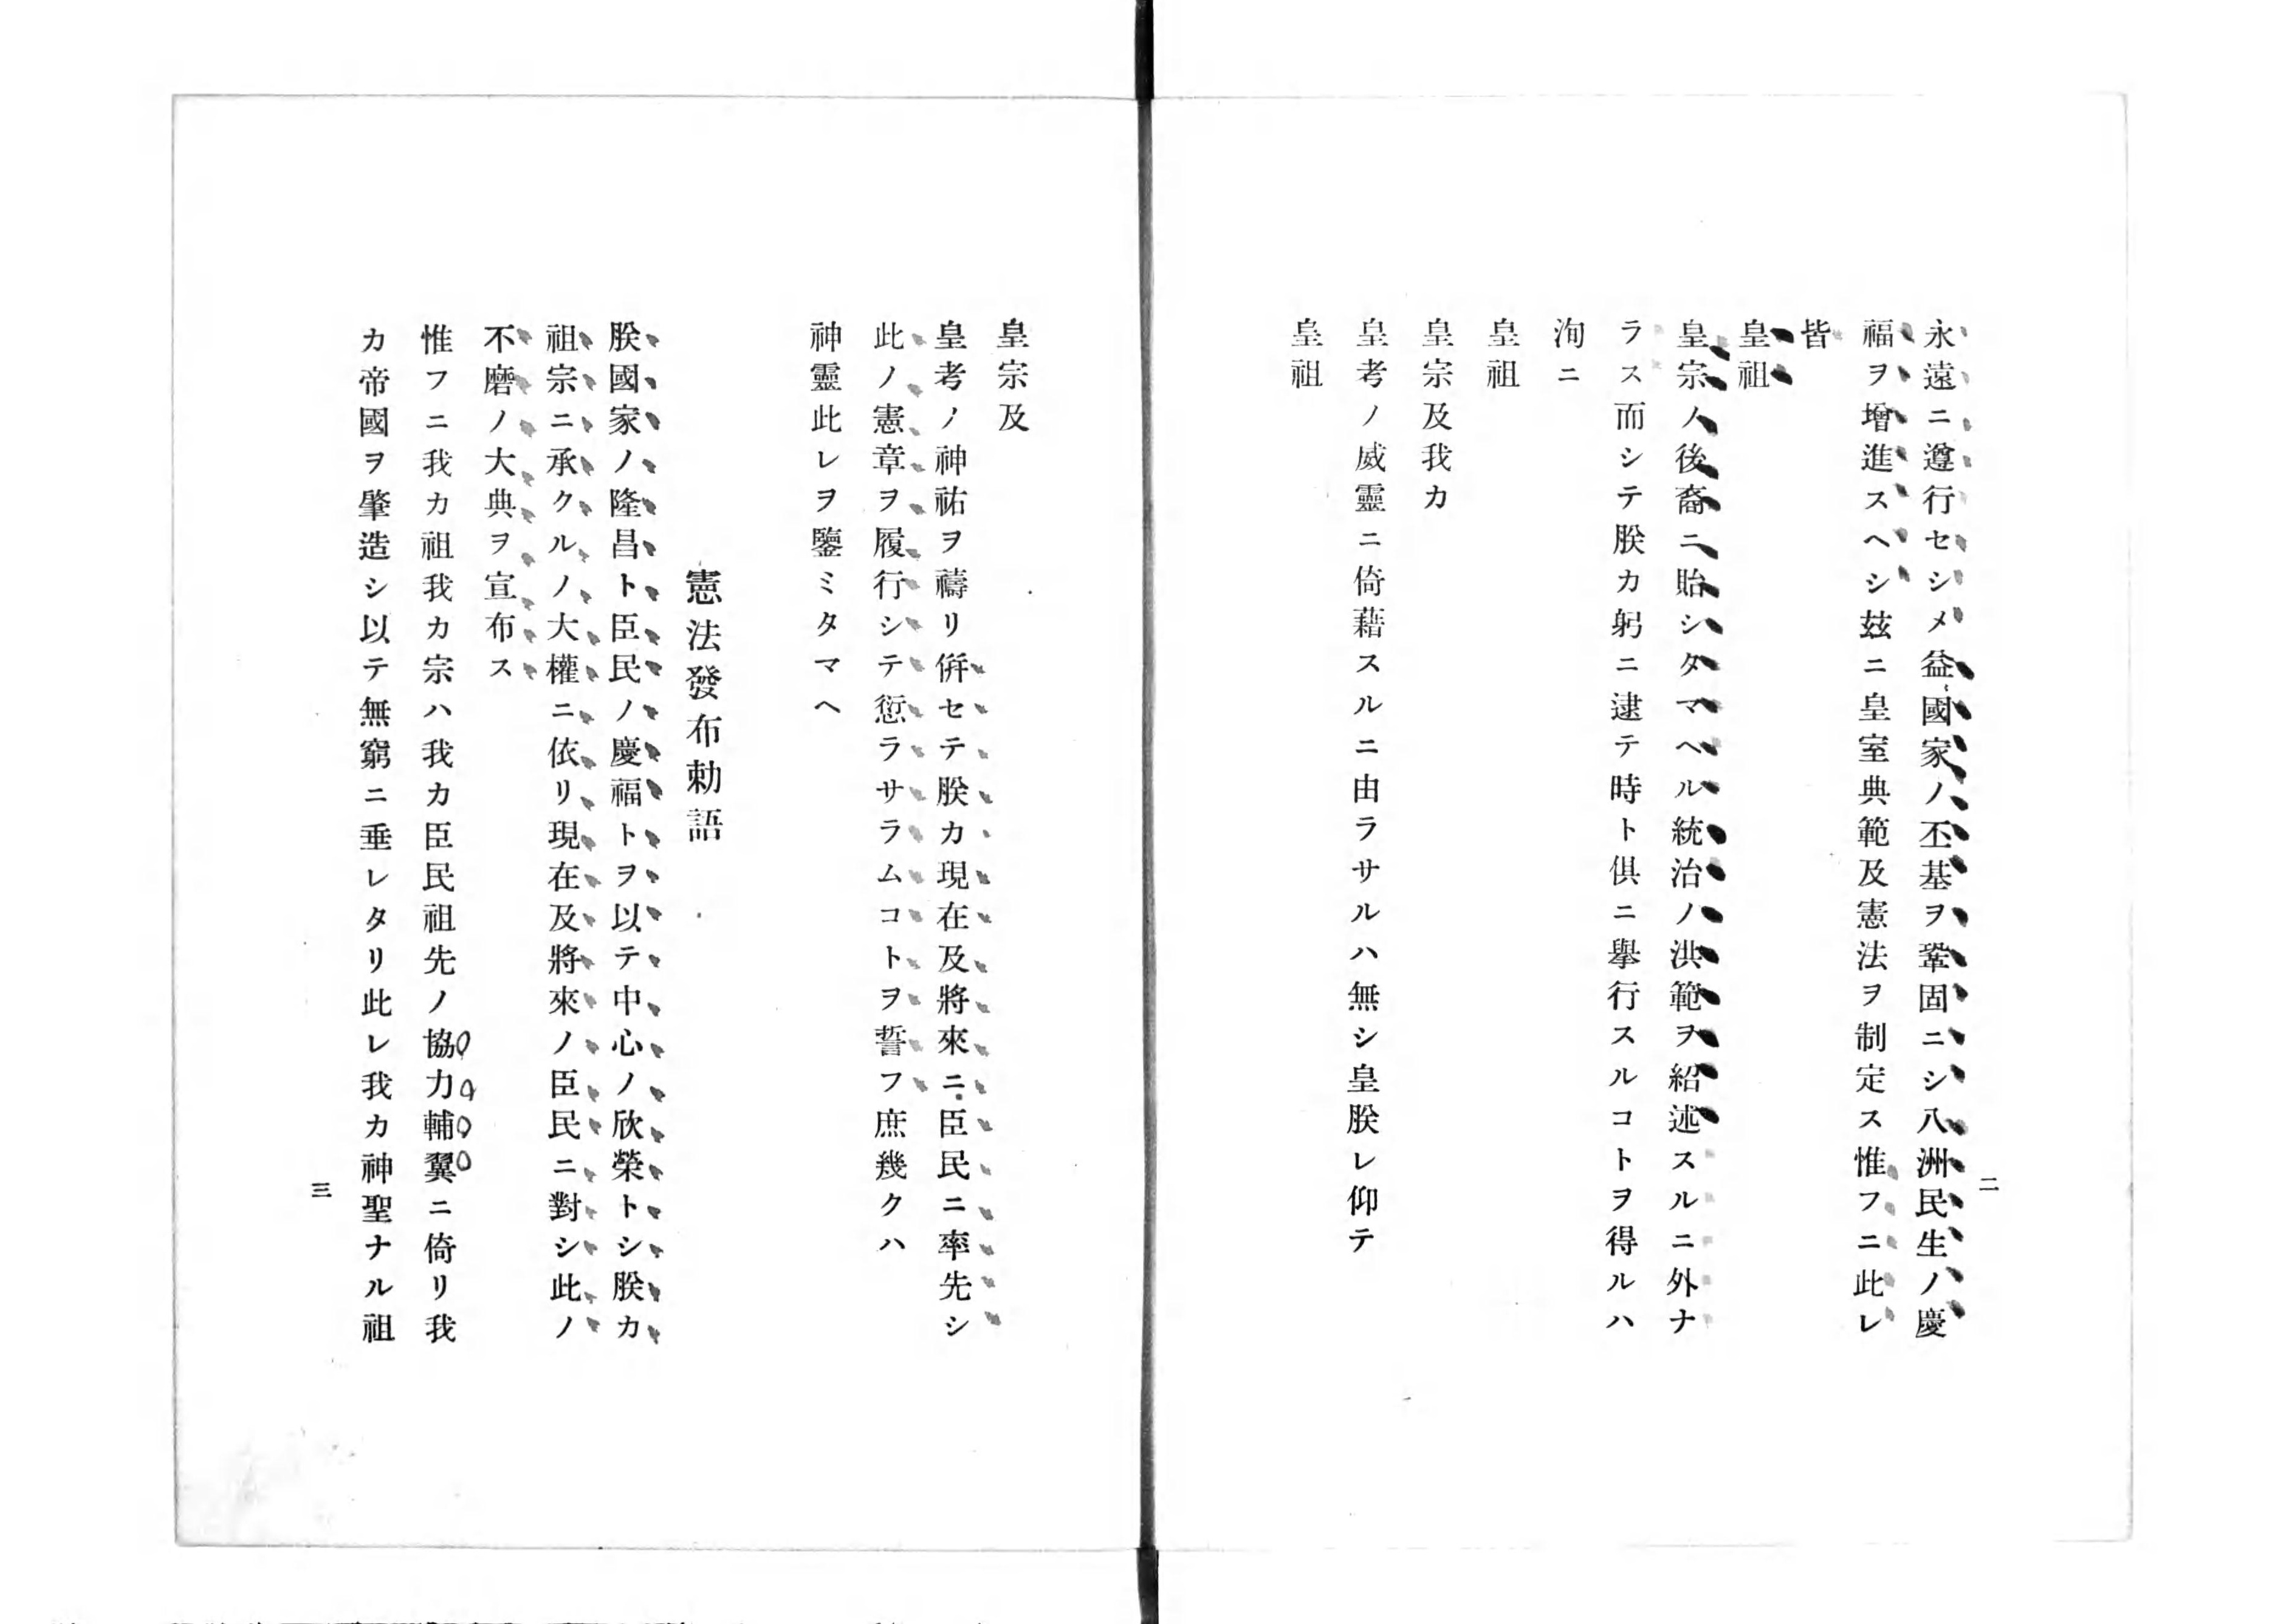 二
永遠ニ遵行セシメ益國家ノ丕基ヲ鞏固ニシ八洲民生ノ慶
福ヲ增進スヘシ玆ニ皇室典範及憲法ヲ制定ス惟フニ此レ
皆
皇祖
皇宗ノ後裔ニ貽シタマヘル統治ノ洪範ヲ紹述スルニ外ナ
ラス而シテ朕カ躬ニ逮テ時ト俱ニ擧行スルコトヲ得ルハ
洵ニ
皇祖
皇宗及我カ
皇考ノ威靈ニ倚藉スルニ由ラサルハ無シ皇朕レ仰テ
皇祖
皇宗及
皇考ノ神祐ヲ禱リ倂セテ朕カ現在及將來ニ臣民ニ率先シ
此ノ憲章ヲ履行シテ愆ラサラムコトヲ誓フ庶幾クハ
神靈此レヲ鑒ミタマヘ
憲法發布勅語
朕國家ノ隆昌ト臣民ノ慶福トヲ以テ中心ノ欣榮トシ朕カ
祖宗ニ承クルノ大權ニ依リ現在及將來ノ臣民ニ對シ此ノ
不磨ノ大典ヲ宣布ス
惟フニ我カ祖我カ宗ハ我カ臣民祖先ノ協力輔翼ニ倚リ我
カ帝國ヲ肇造シ以テ無窮ニ垂レタリ此レ我カ神聖ナル祖
三